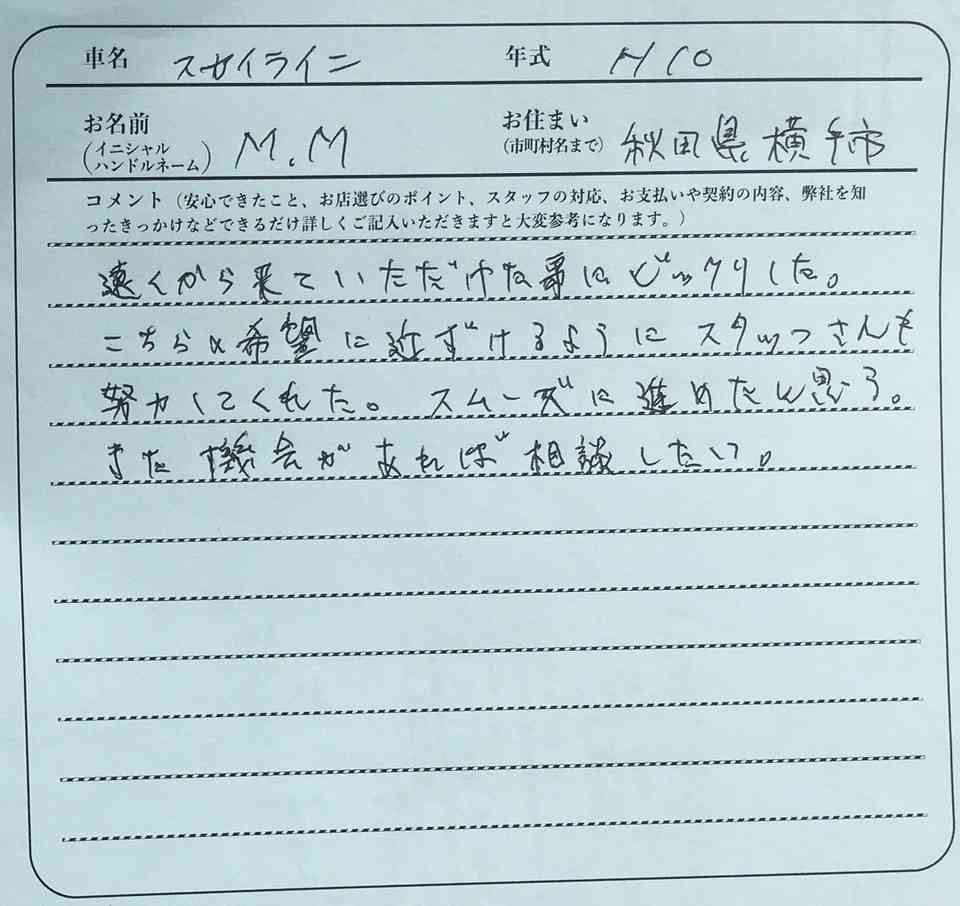 車名 スカイライン 年式 H10
お名前 (イニシャル ハンドルネーム) M.M お住まい (市町村名まで) 秋田県横手市
コメント（安心できたこと、お店選びのポイント、スタッフの対応、お支払いや契約の内容、弊社を知
ったきっかけなどできるだけ詳しくご記入いただきますと大変参考になります。）
遠くから来ていただけた事にビックリした。
こちらの希望に近ずけるように スタッフさんも
努力してくれた。 スムーズに進めたと思う。
また機会があれば相談したい。